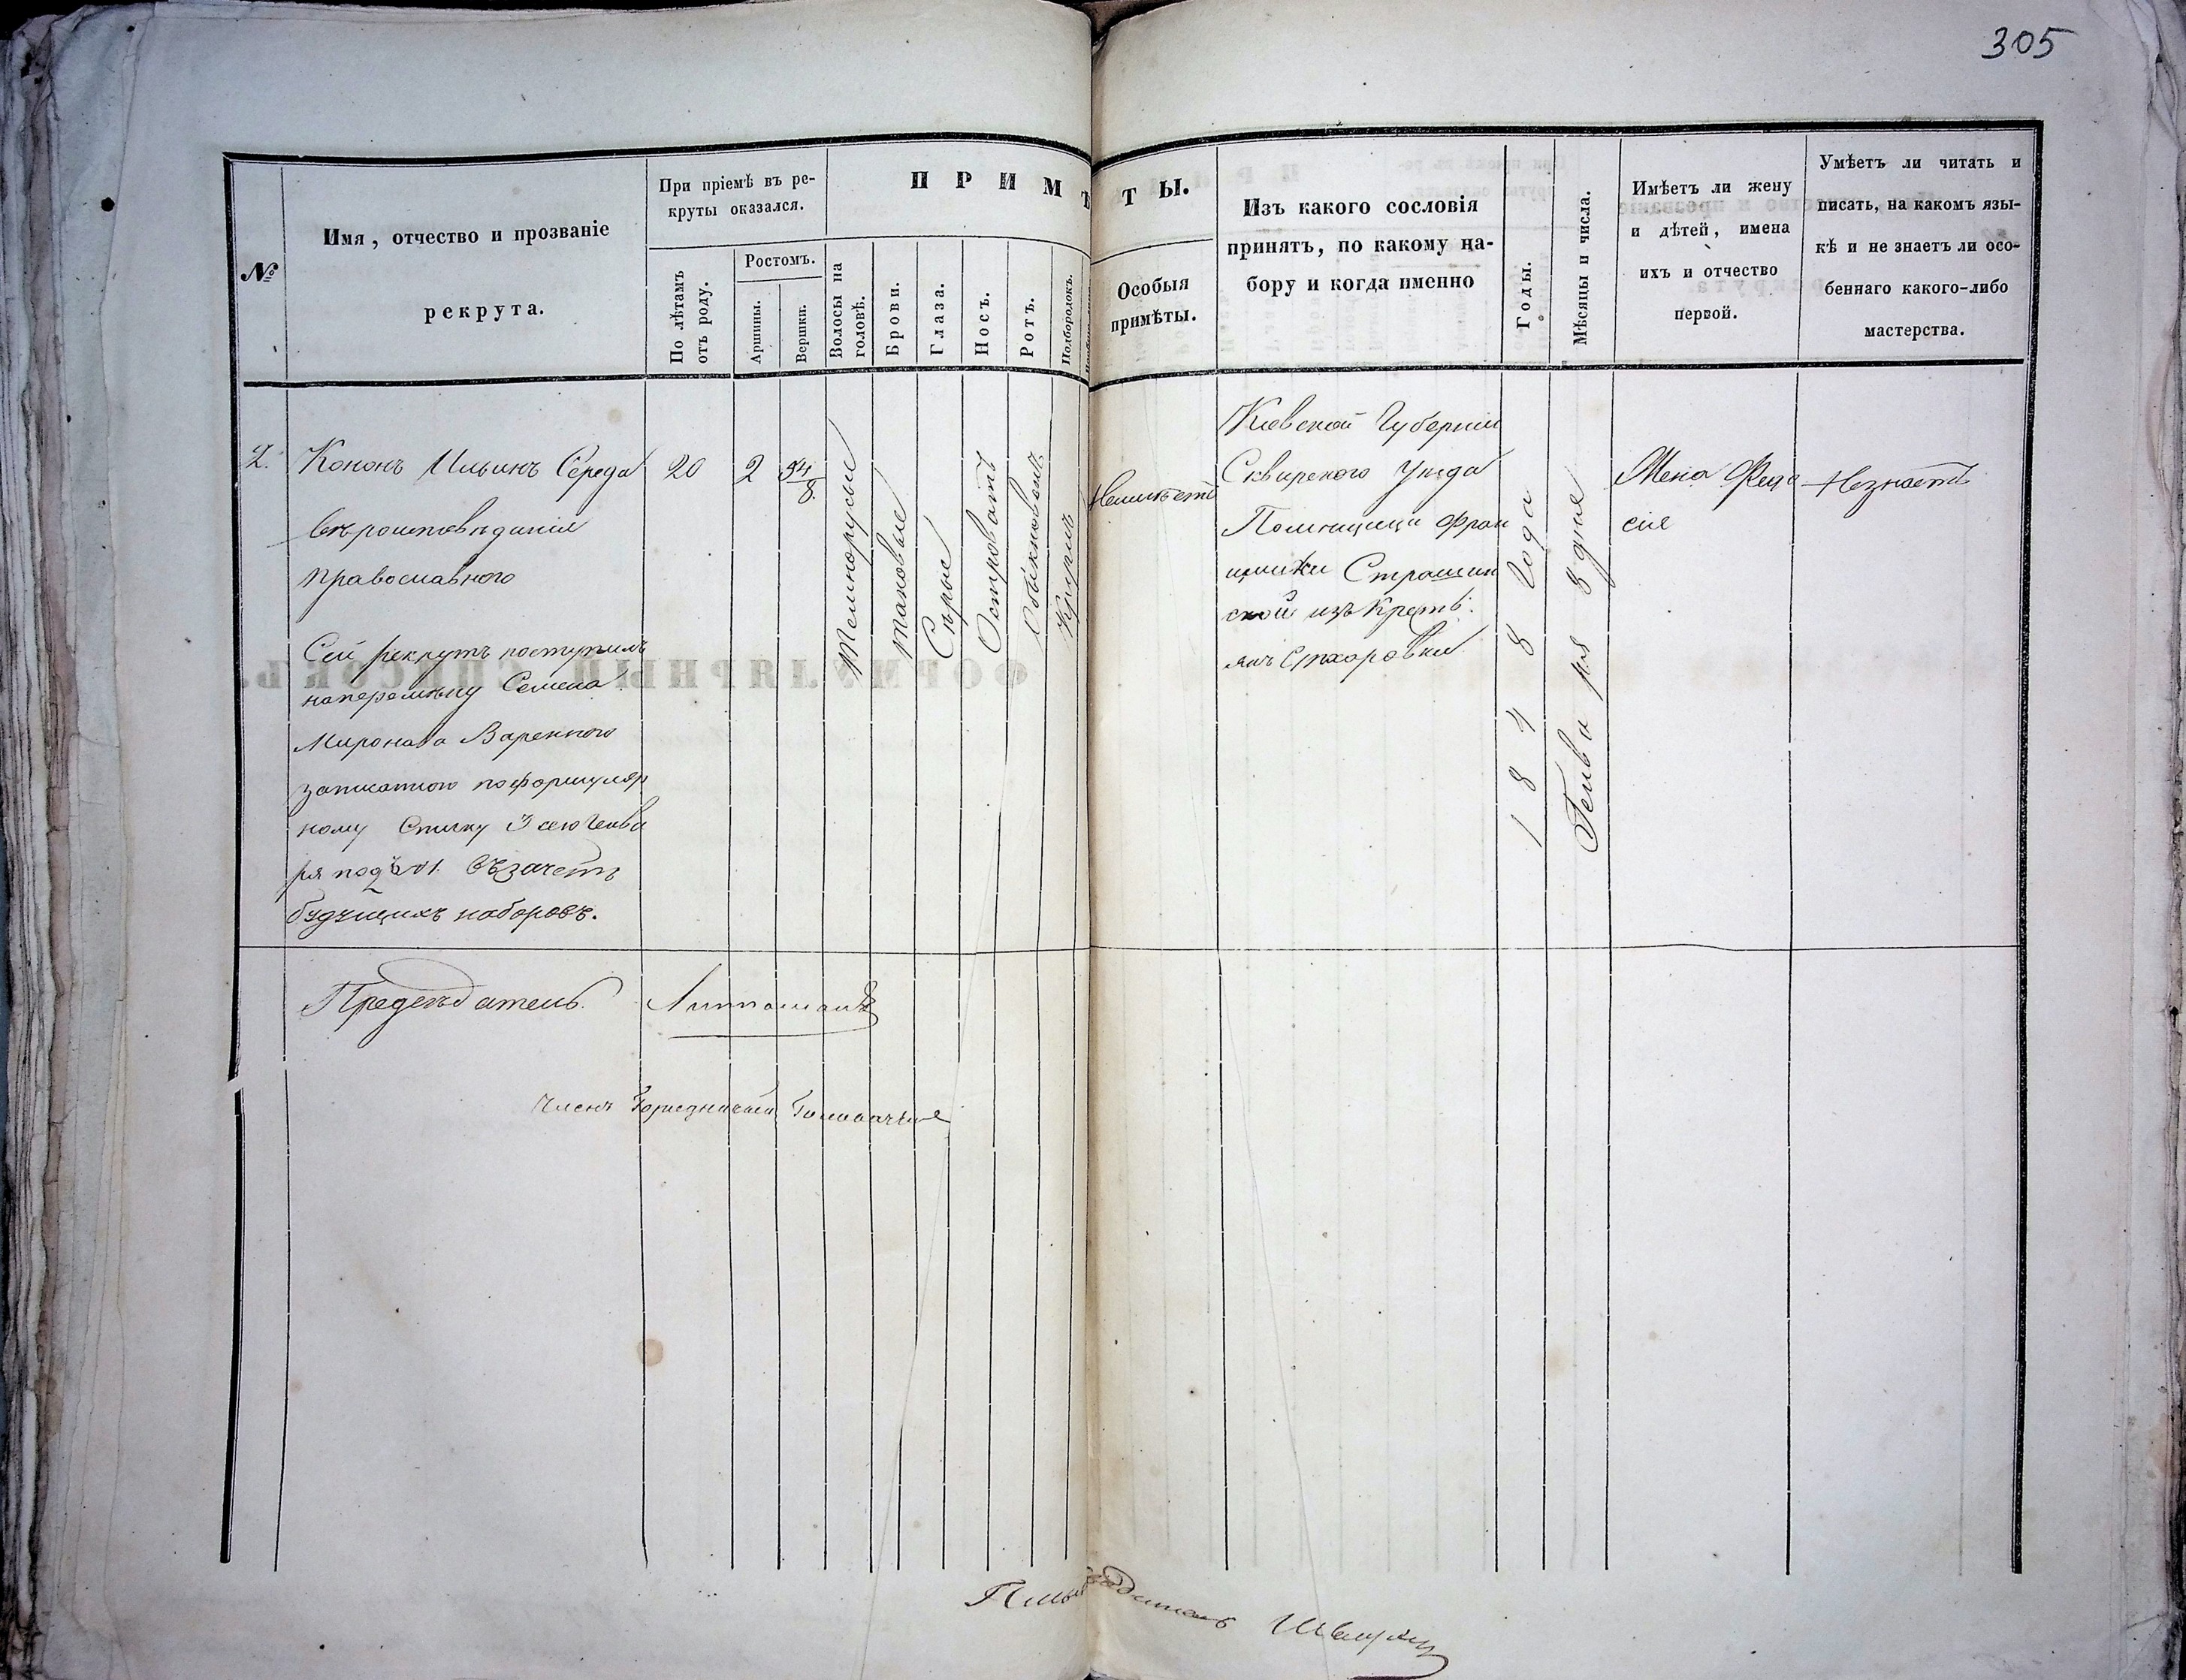 305
№
Имя, отчество и прозваніе
рекрута.
При пріемѣ въ ре-
круты оказался.
По лѣтамъ
отъ роду.
Ростомъ.
Аршины.
Вершки.
П Р И М Ѣ Т Ы.
Волосы на
головѣ.
Брови.
Глаза.
Носъ.
Ротъ.
Подбородокъ.
Особыя
примѣты.
Изъ какого сословія
принятъ, по какому на-
бору и когда именно
Годы.
Мѣсяцы и числа.
Имѣетъ ли жену
и дѣтей, имена
ихъ и отчество
первой.
Умѣетъ ли читать и
писать, на какомъ язы-
кѣ и не знаетъ ли осо-
беннаго какого-либо
мастерства.
2.
Кононъ Ильинъ Середа
вѣроисповѣданія
православного
Сей рекрутъ поступилъ
наперемѣну Семена
Миронова Варенного
записанного поформуляр
ному Списку 3 сего Генва
ря подъ №1. въ зачетъ
будущихъ наборовъ.
20
2
5 4/8
Темнорусые
таковые
Сѣрые
Островатъ
Обыкновенъ
Кругелъ
Неимѣетъ
Кіевской Губерніи
Сквирского Уѣзда
Помѣщицы Фран
цишки Страшин
ской изъ Кресть:
янъ
1848 Года
Генваря 8 дня
Жена Феде
сія
Незнаетъ
Предсѣдатель
Членъ Городничій